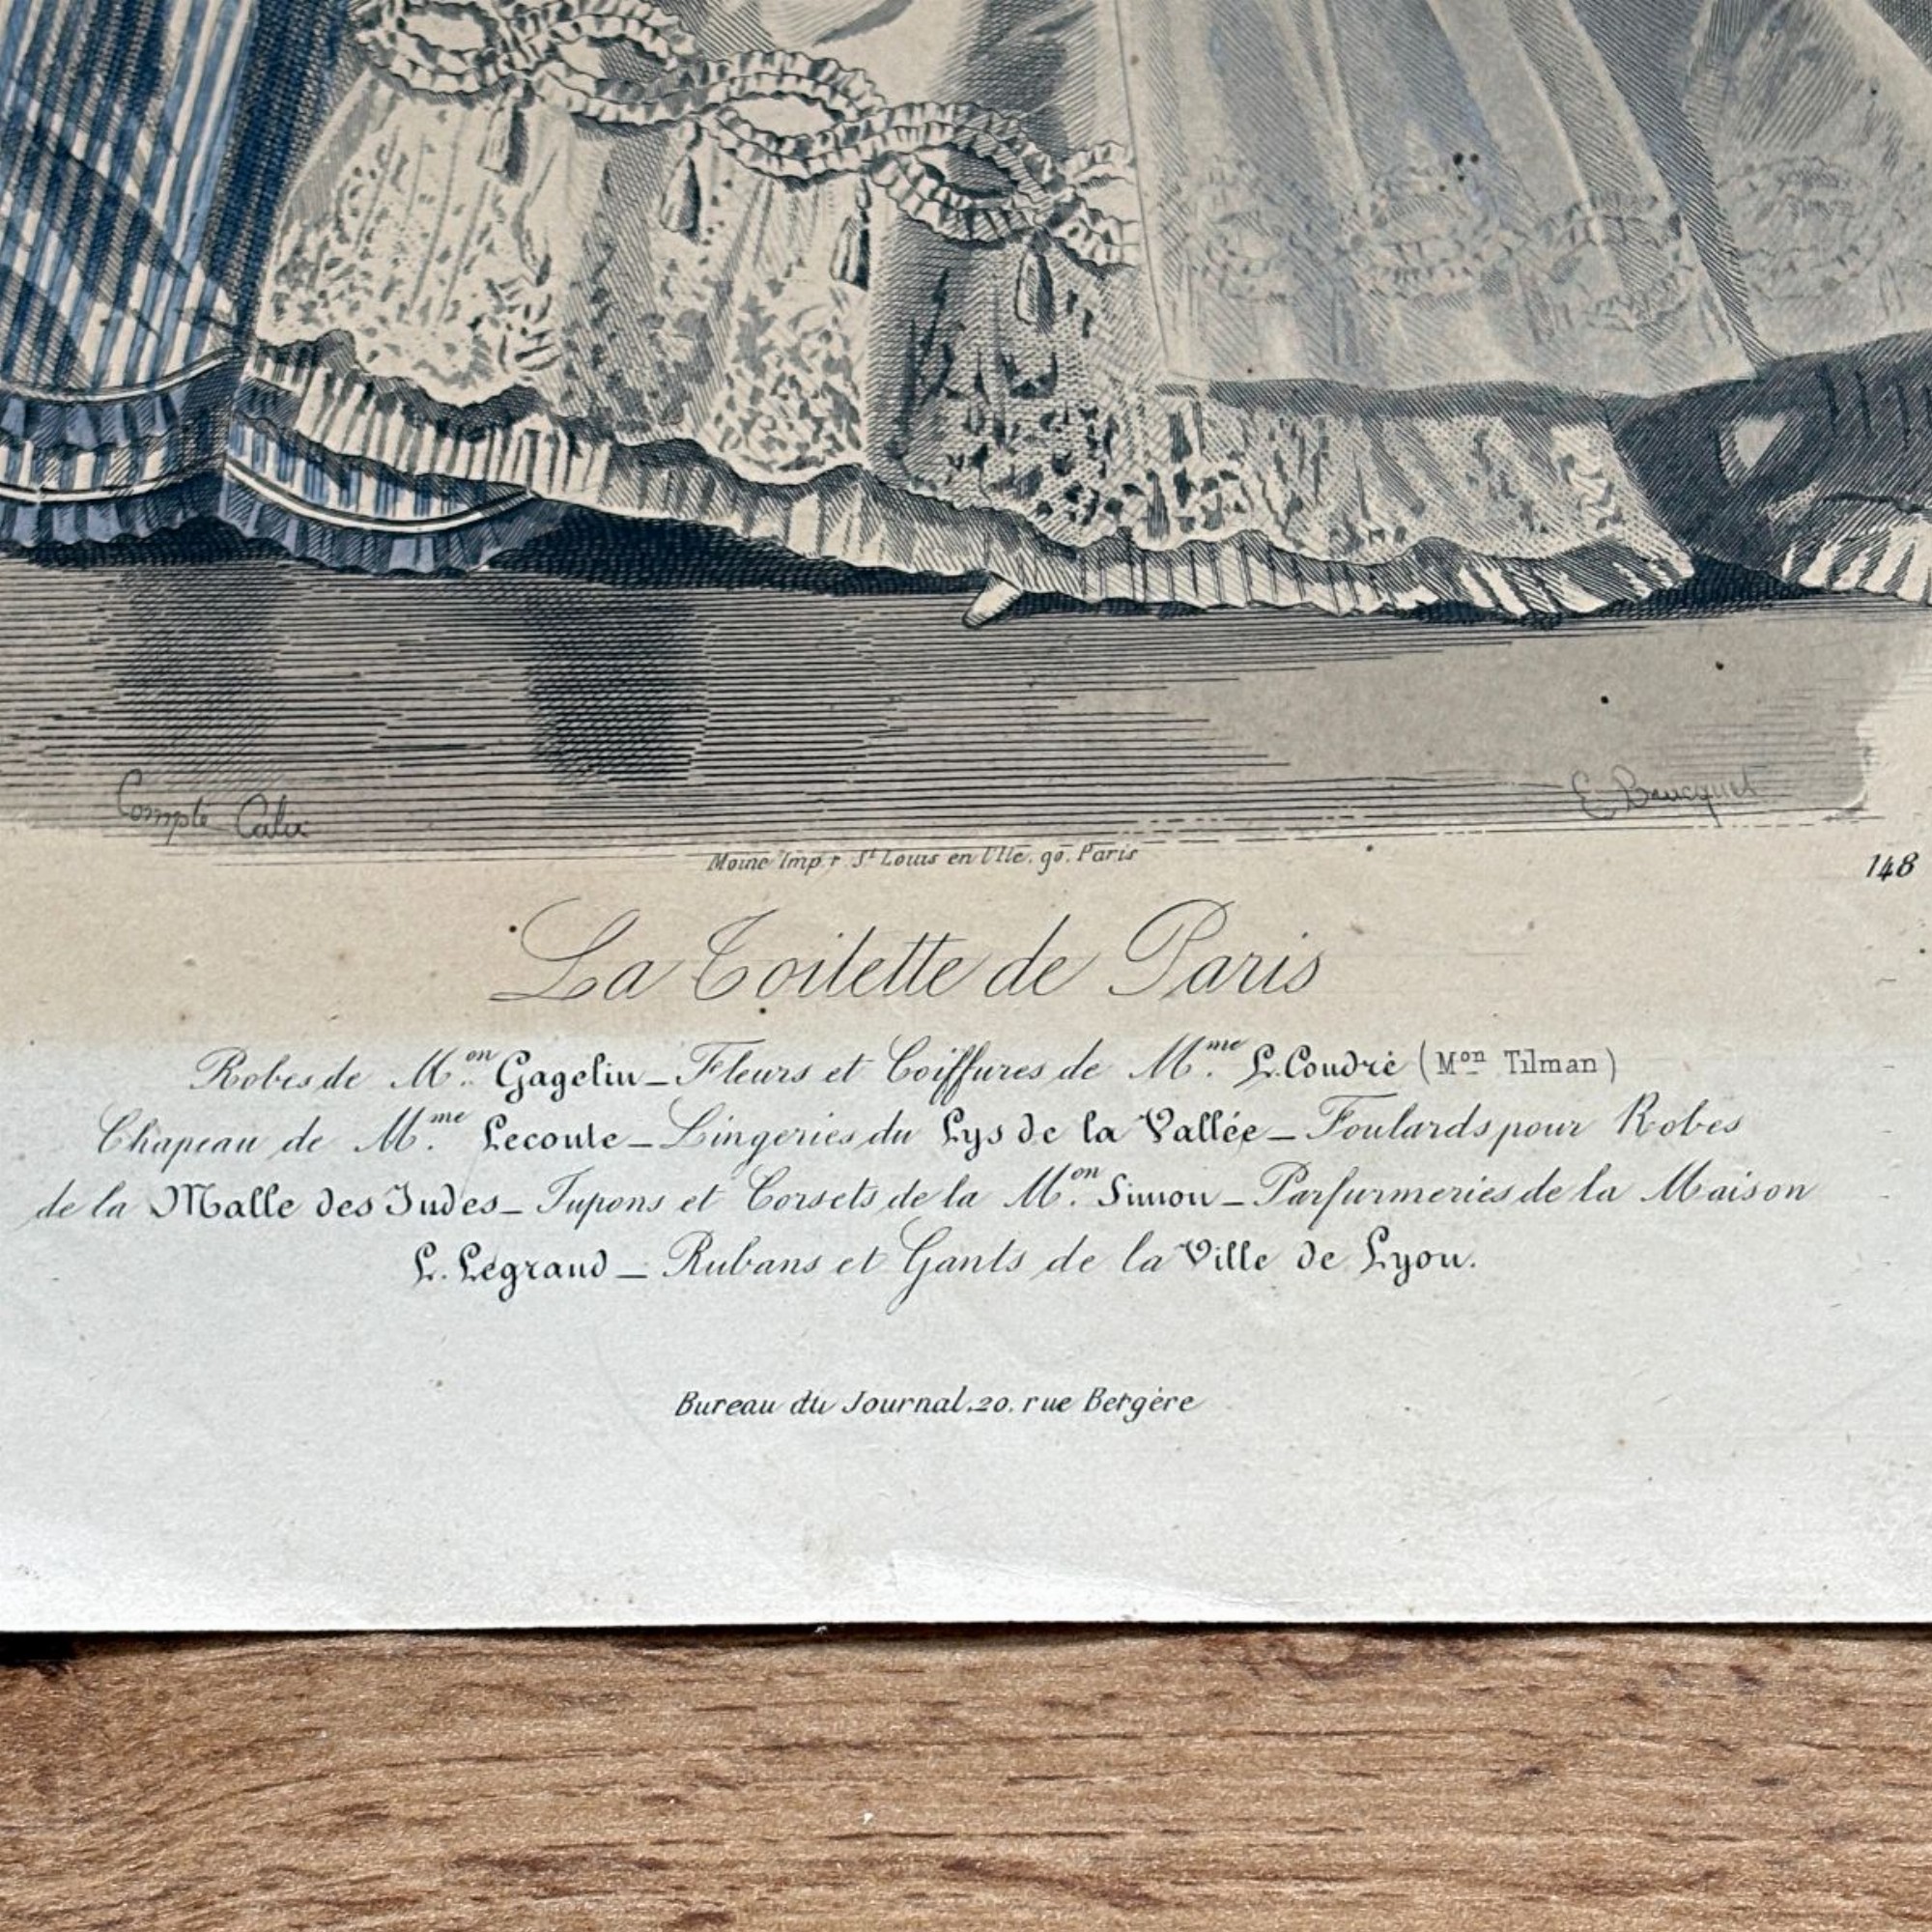 Compte Calix
E. Bracquet
Moine Imp. r. St Louis en l'Ile. 90. Paris
148
La Toilette de Paris
Robes de M.on Gagelin_Fleurs et Coiffures de M.me L. Coudré (Mon Tilman)
Chapeau de M.me Lecoute_Lingeries du Lys de la Vallée_Foulards pour Robes
de la Malle des Indes_Jupons et Corsets de la M.on Simon_Parfumeries de la Maison
L. Legrand_Rubans et Gants de la Ville de Lyon.
Bureau du Journal, 20. rue Bergère